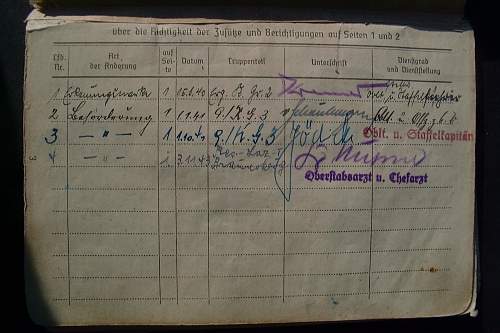 über die Richtigkeit der Zusätze und Berichtigungen auf Seiten 1 und 2
Lfd. Nr. Art der Änderung auf Seite Datum Truppenteil Unterschrift Dienstgrad und Dienststellung
1 Erkennungsmarke 1 15.1.40 Erg. B. Gr. 2 Oblt. u. Staffelkapitän
2 Beförderung 1 1.1.41 9./K.G.3 Oblt. u. Offz. z.b.V.
3 — " — 1 9./K.G.3 Oblt. u. Staffelkapitän
4 — " — 1 Res.-Laz. I
Oberstabsarzt u. Chefarzt